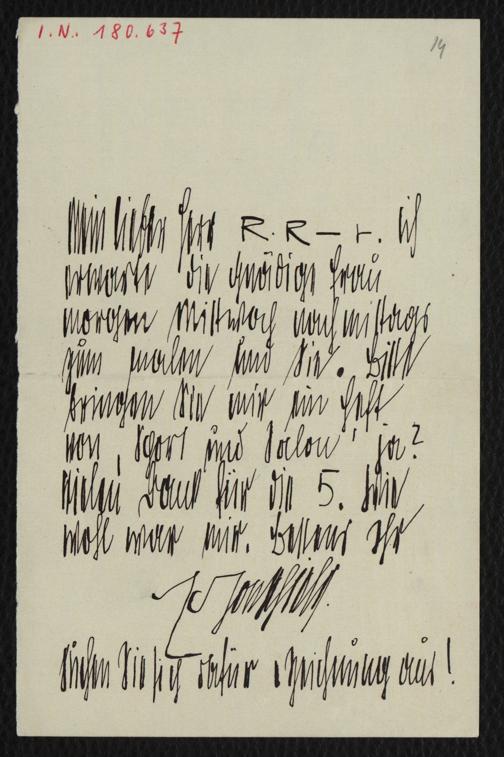 I.N. 180.637
14
Mein lieber Herr R. R — r. ich
erwarte die gnädige Frau
morgen Mittwoch nachmittags
zum malen und Sie. Bitte
bringen Sie mir ein Heft
von „Sport und Salon' ja?
Vielen Dank für die 5. Wie
wohl war mir. Bestens Ihr
Suchen Sie sich dafür 1 Zeichnung aus!